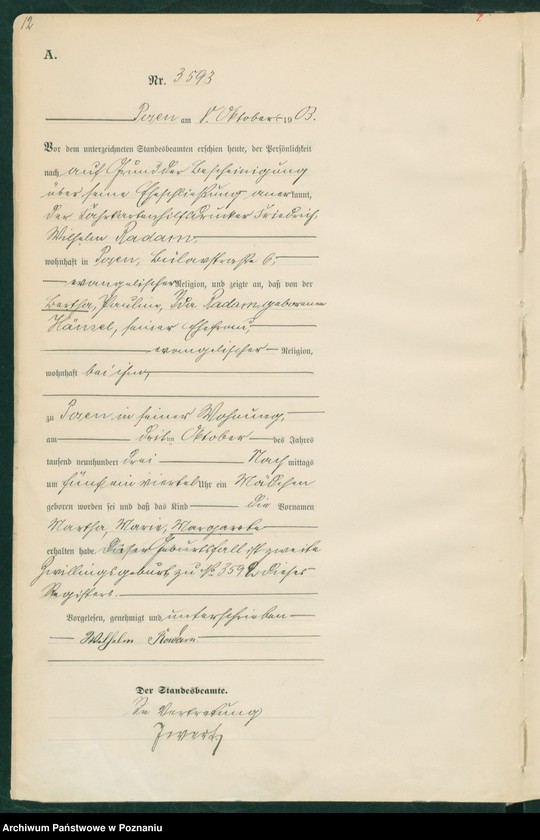 12
A.
Nr. 3593
Posen am 8. Oktober 1903.
Vor dem unterzeichneten Standesbeamten erschien heute, der Persönlichkeit
nach auf Grund der Bescheinigung
über seine Eheschließung anerkannt,
der Fahrkartenhilfsdrucker Friedrich
Wilhelm Radam,
wohnhaft in Posen, Bülowstraße 6,
evangelischer Religion, und zeigte an, daß von der
Bertha, Pauline, Ida Radam, geborenen
Hänsel, seiner Ehefrau,
evangelischer Religion,
wohnhaft bei ihm,
zu Posen in seiner Wohnung,
am dritten Oktober des Jahres
tausend neunhundert drei Nachmittags
um fünf ein viertel Uhr ein Mädchen
geboren worden sei und daß das Kind die Vornamen
Martha, Marie, Margarete
erhalten habe. Dieser Geburtsfall ist zweite
Zwillingsgeburt zu No 3592 dieses
Registers.
Vorgelesen, genehmigt und unterschrieben
Wilhelm Radam
Der Standesbeamte.
In Vertretung
Archiwum Państwowe w Poznaniu